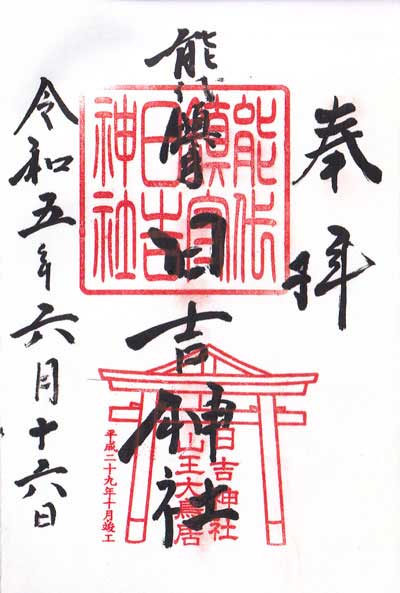 奉拝
能代鎮守
日吉神社
令和五年六月十六日
能代
鎮守
日吉
神社
日吉神社
山王大鳥居
平成二十九年十月竣工